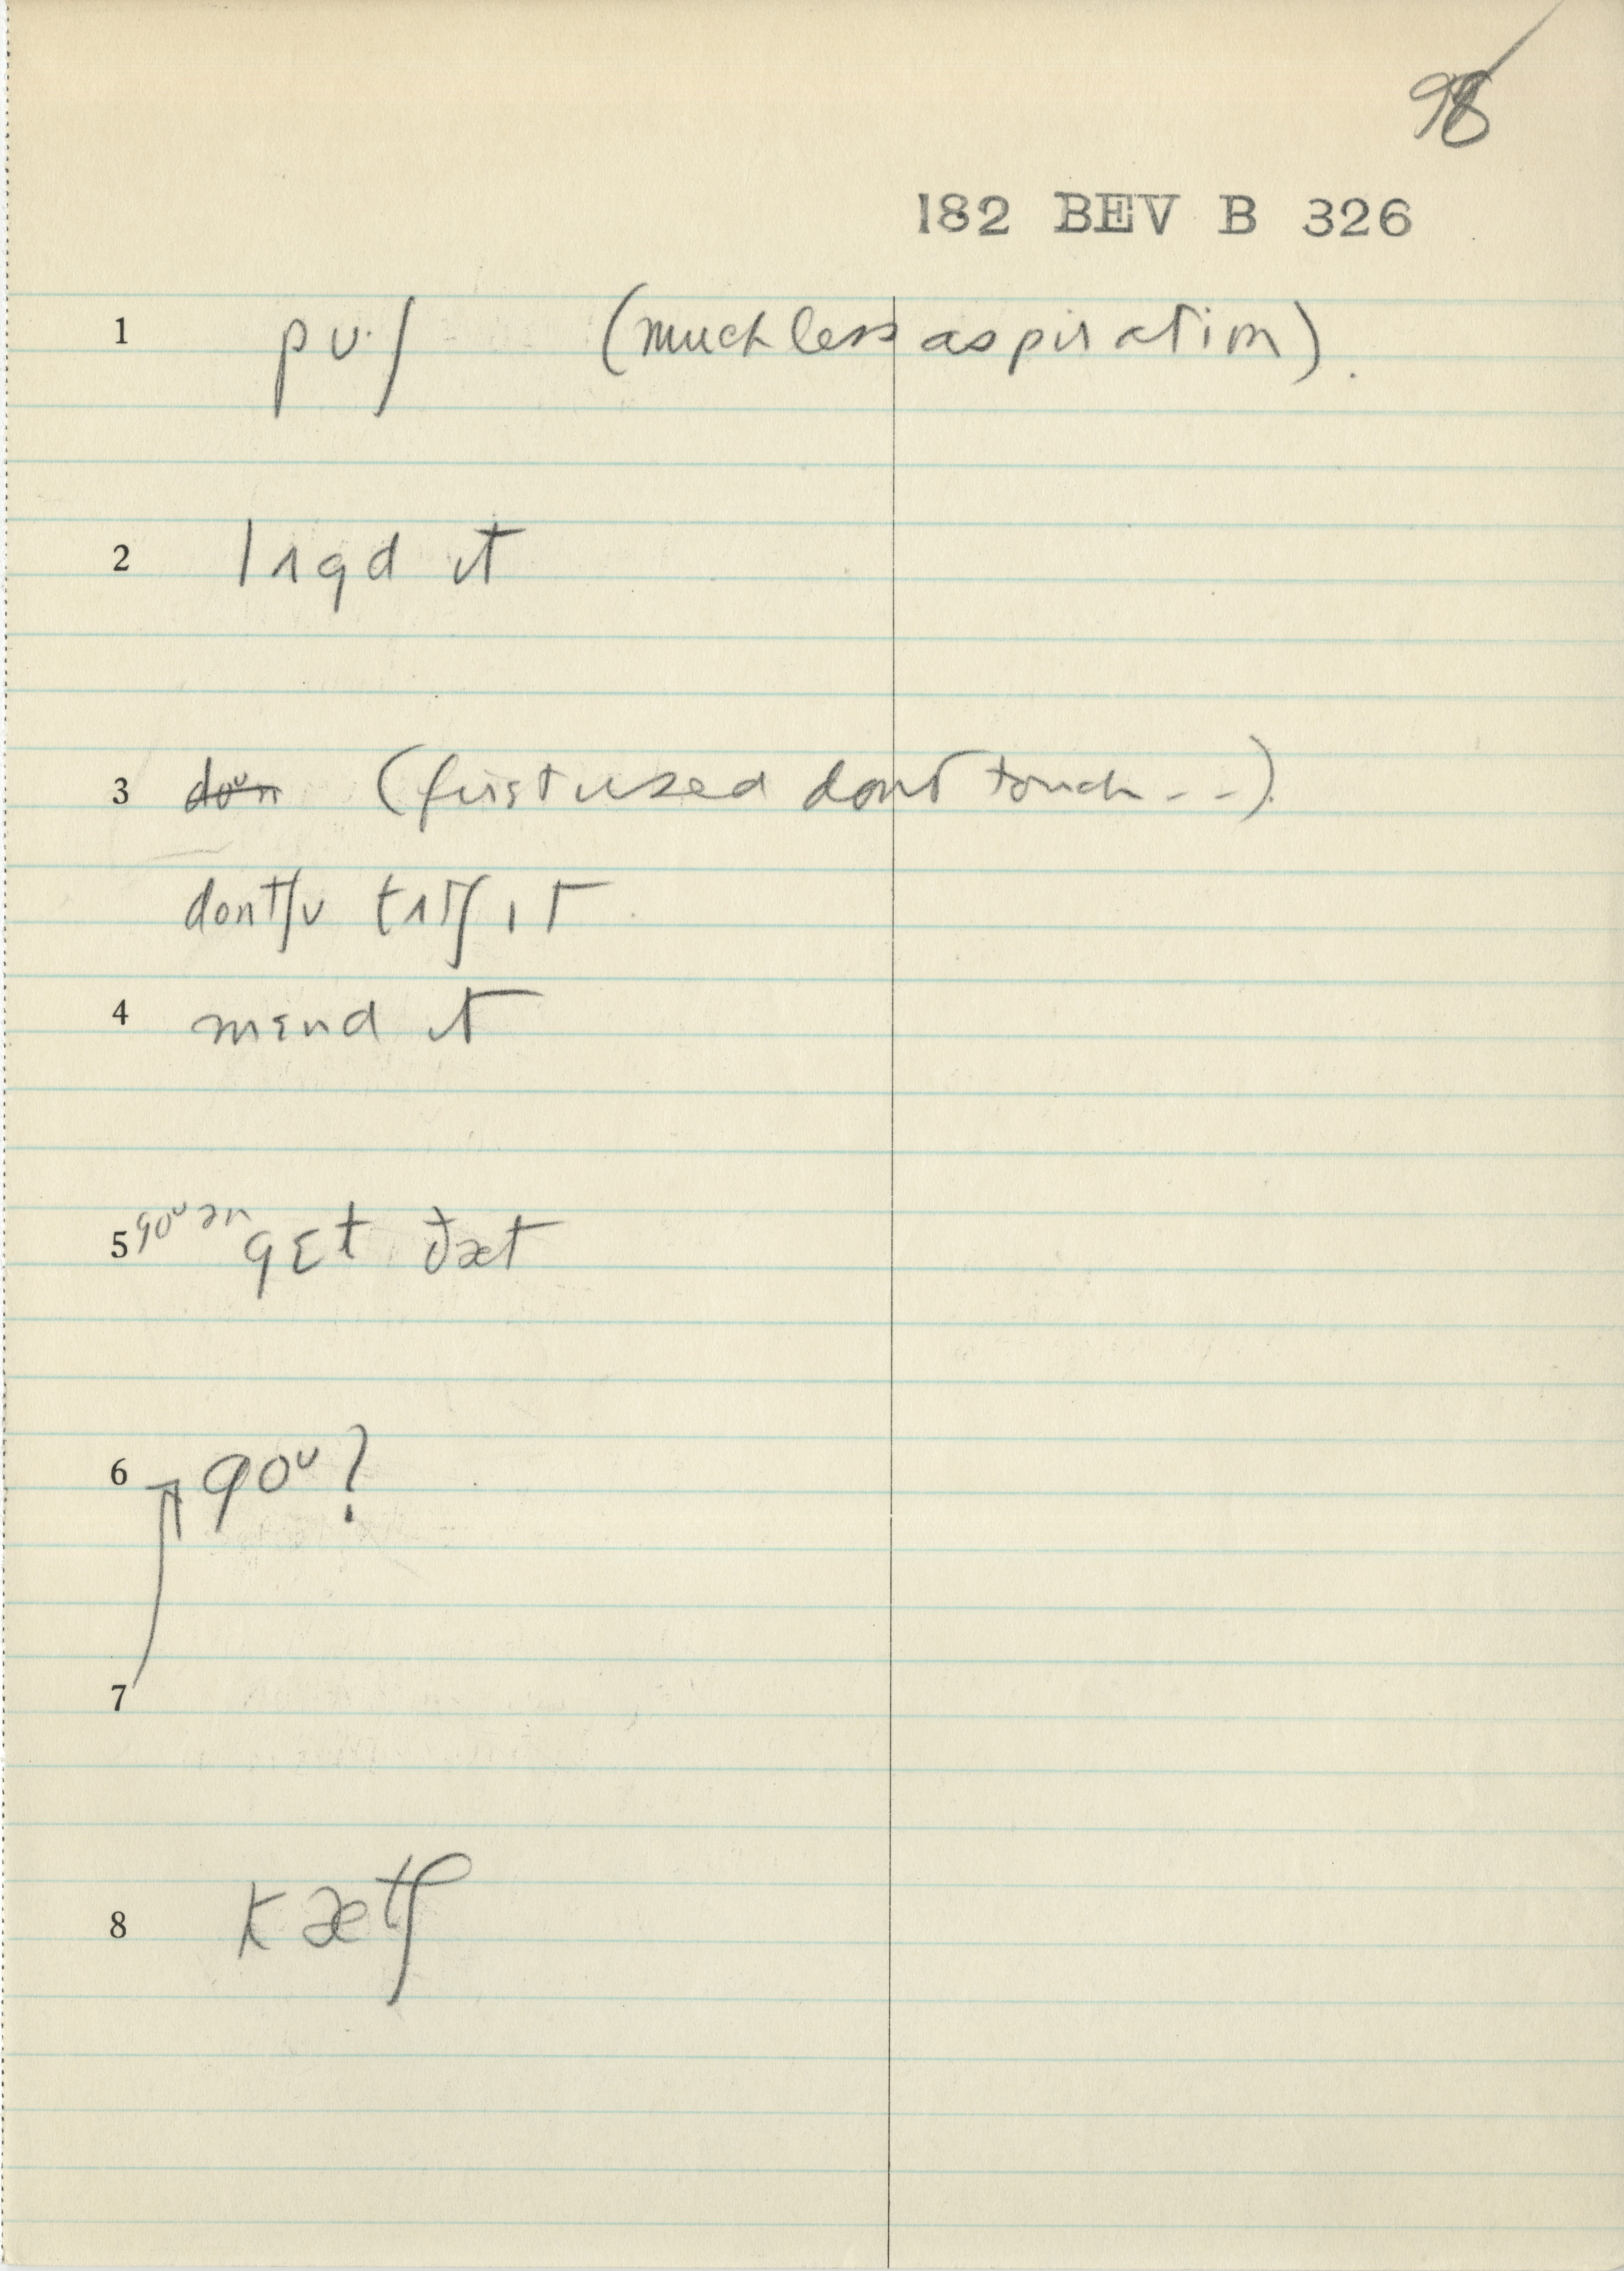 98
182 BEV B 326
1 pʊ·ʃ (much less aspiration).
2 lʌgd ɪt
3 doᵘn (first used dont touch - -).
dontʃʊ tʌtʃ ɪt
4 mɛnd ɪt
5 goᵘ ən gɛt ðæt
6 goᵘ?
7
8 kætʃ